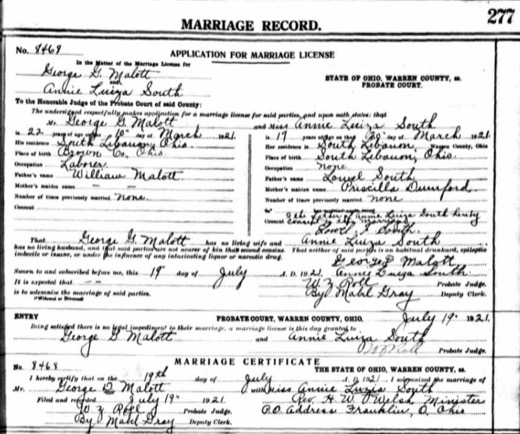 277
MARRIAGE RECORD.
No. 8468 APPLICATION FOR MARRIAGE LICENSE
In the Matter of the Marriage License for
George G. Malott
and
Annie Luiza South
STATE OF OHIO, WARREN COUNTY, ss.
PROBATE COURT.
To the Honorable Judge of the Probate Court of said County:
The undersigned respectfully makes application for a marriage license for said parties, and upon oath states: that
Mr. George G. Malott and Miss Annie Luiza South
is 22 years of age on the 10th day of March 1921.
His residence is South Lebanon, Ohio
Place of birth Brown Co, Ohio
Occupation Laborer
Father's name William Malott
Mother's maiden name — —
Number of times previously married None
Consent
is 17 years of age on the day of March 1921.
Her residence is South Lebanon, Warren County, Ohio
Place of birth South Lebanon, Ohio
Occupation none
Father's name Lowel South
Mother's maiden name Priscilla Dunford
Number of times previously married none
I the father of Annie Luiza South hereby
Consent to the Marriage
South
That George G. Malott has no living wife and Annie Luiza South
has no living husband, and that said parties are not nearer of kin than second cousins. That neither of said parties is an habitual drunkard, epileptic
imbecile or insane, or under the influence of any intoxicating liquor or narcotic drug.
George Malott
Sworn to and subscribed before me, this 19 day of July A. D. 1921. Annie Luiza South
It is expected that — —
W. Z. Roll Probate Judge.
is to solemnize the marriage of said parties. By Mabel Gray Deputy Clerk.
ENTRY PROBATE COURT, WARREN COUNTY, OHIO, July 19" 1921.
Being satisfied there is no legal impediment to their marriage, a marriage license is this day granted to
George G. Malott and Annie Luiza South
W Z Roll Probate Judge.
MARRIAGE CERTIFICATE
No. 8468 THE STATE OF OHIO, WARREN COUNTY, ss.
I hereby certify that on the 19th day of July A.D. 1921 I solemnized the marriage of
Mr. George G. Malott with Miss Annie Luzia South
Filed and recorded July 19" 1921. Rev. H. W. O Welsh Minister
W Z Roll Probate Judge. P.O. Address Franklin, O. Ohio
By Mabel Gray Deputy Clerk.